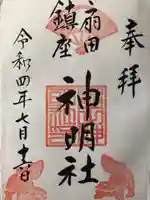 奉拝
扇田
鎮座
神明社
令和四年七月十二日